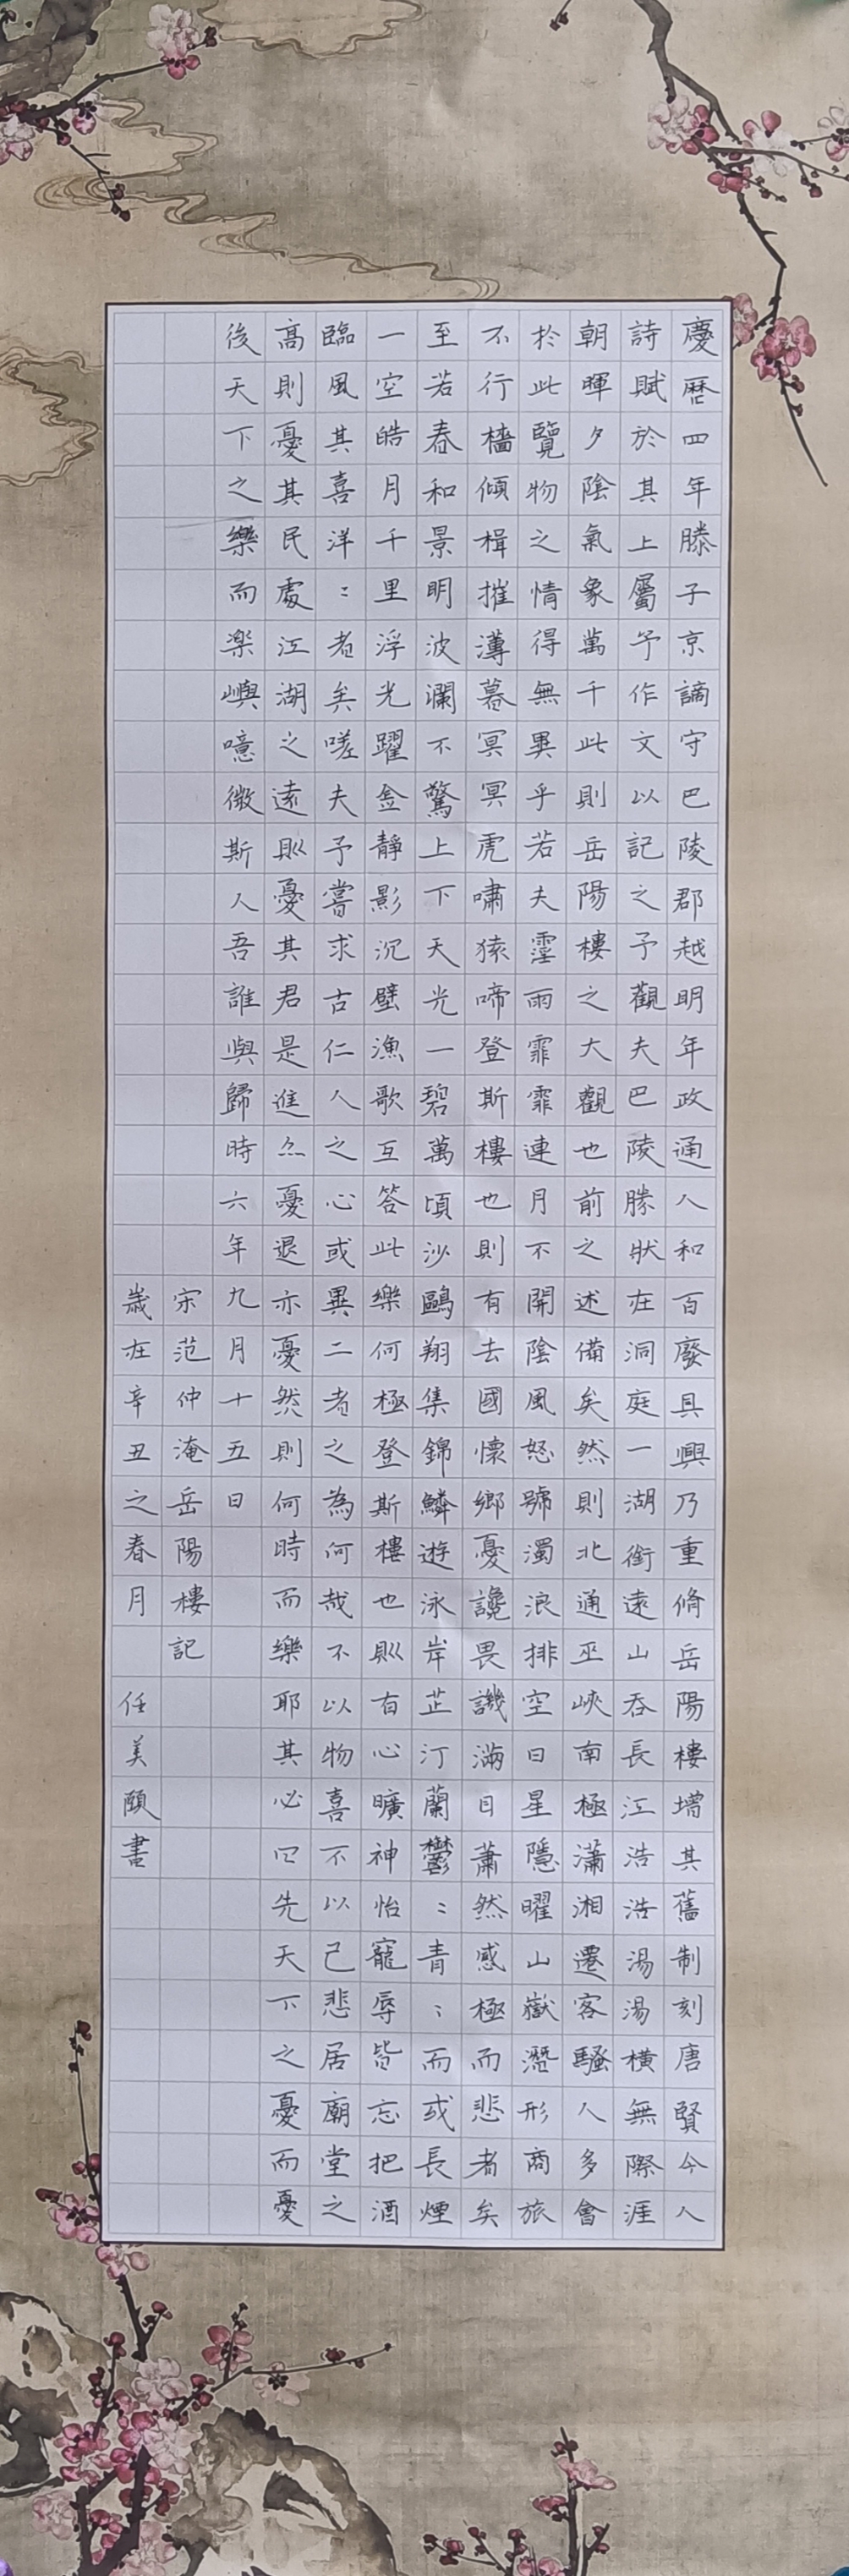 慶曆四年滕子京謫守巴陵郡越明年政通人和百廢具興乃重脩岳陽樓增其舊制刻唐賢今人
詩賦於其上屬予作文以記之予觀夫巴陵勝狀在洞庭一湖銜遠山吞長江浩浩湯湯橫無際涯
朝暉夕陰氣象萬千此則岳陽樓之大觀也前之述備矣然則北通巫峽南極瀟湘遷客騷人多會
於此覽物之情得無異乎若夫霪雨霏霏連月不開陰風怒號濁浪排空日星隱曜山嶽潛形商旅
不行檣傾楫摧薄暮冥冥虎嘯猿啼登斯樓也則有去國懷鄉憂讒畏譏滿目蕭然感極而悲者矣
至若春和景明波瀾不驚上下天光一碧萬頃沙鷗翔集錦鱗遊泳岸芷汀蘭鬱〻青〻而或長煙
一空皓月千里浮光躍金靜影沉璧漁歌互答此樂何極登斯樓也則有心曠神怡寵辱皆忘把酒
臨風其喜洋〻者矣嗟夫予嘗求古仁人之心或異二者之為何哉不以物喜不以己悲居廟堂之
高則憂其民處江湖之遠則憂其君是進亦憂退亦憂然則何時而樂耶其必曰先天下之憂而憂
後天下之樂而樂歟噫微斯人吾誰與歸時六年九月十五日
宋范仲淹岳陽樓記
歲在辛丑之春月 任美頤書